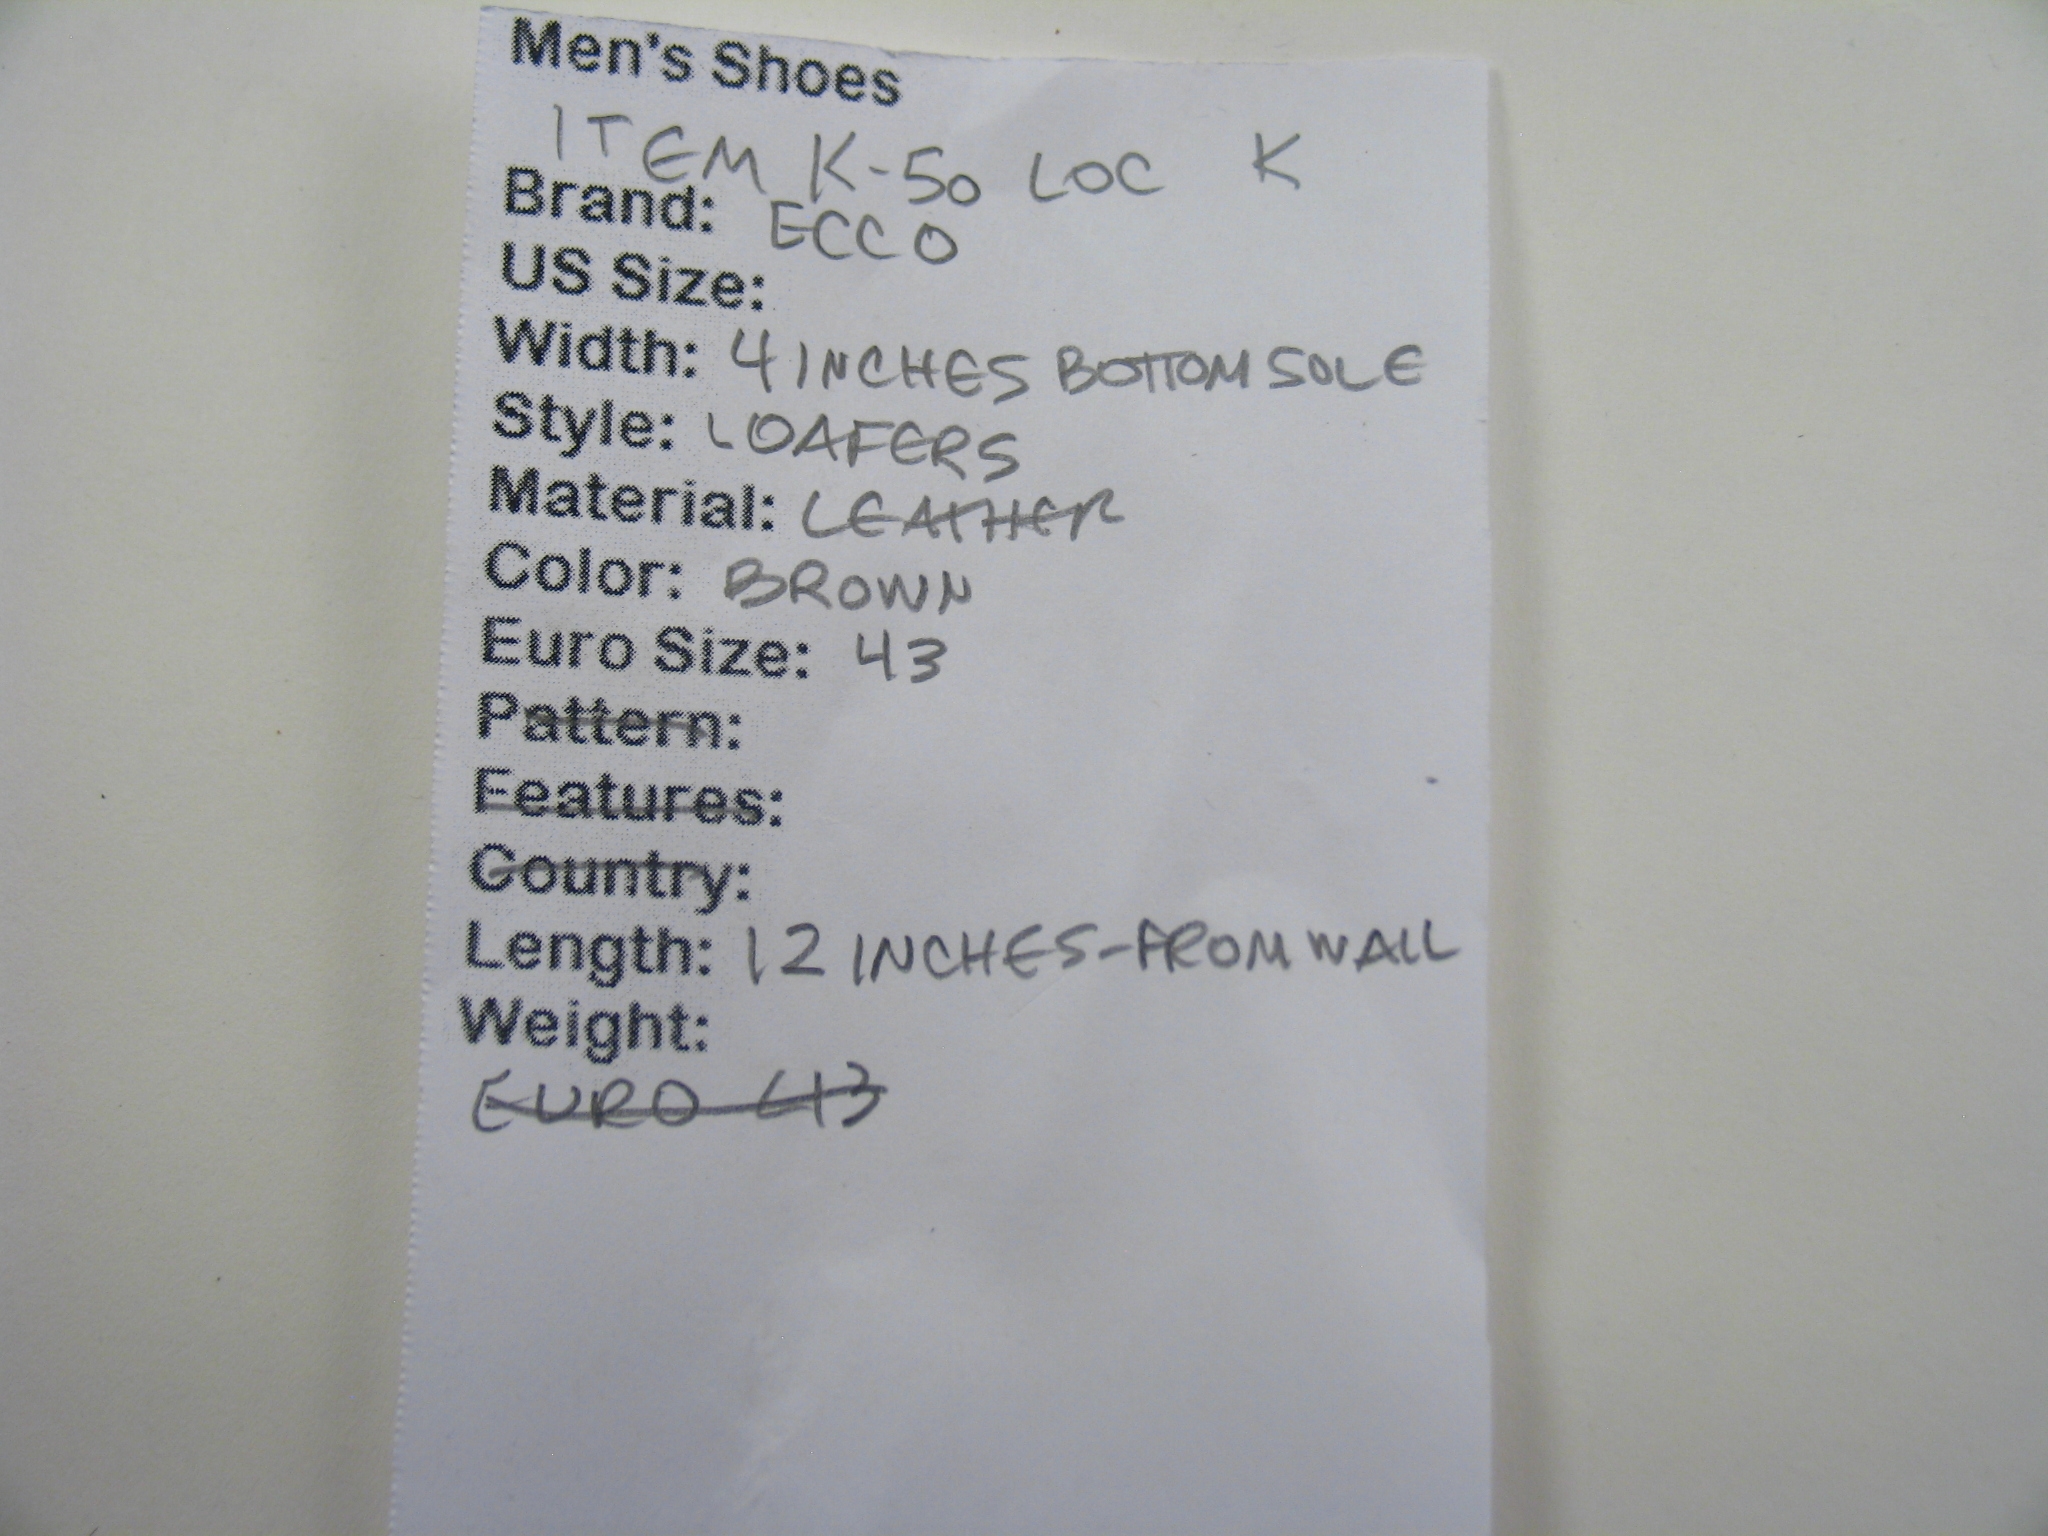 Men's Shoes
ITEM K-50 LOC K
Brand: ECCO
US Size:
Width: 4 INCHES BOTTOM SOLE
Style: LOAFERS
Material: LEATHER
Color: BROWN
Euro Size: 43
Pattern:
Features:
Country:
Length: 12 INCHES-FROM WALL
Weight:
EURO 43